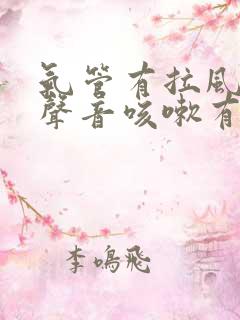 氣管有拉風
聲音咳嗽有
李鳴飛